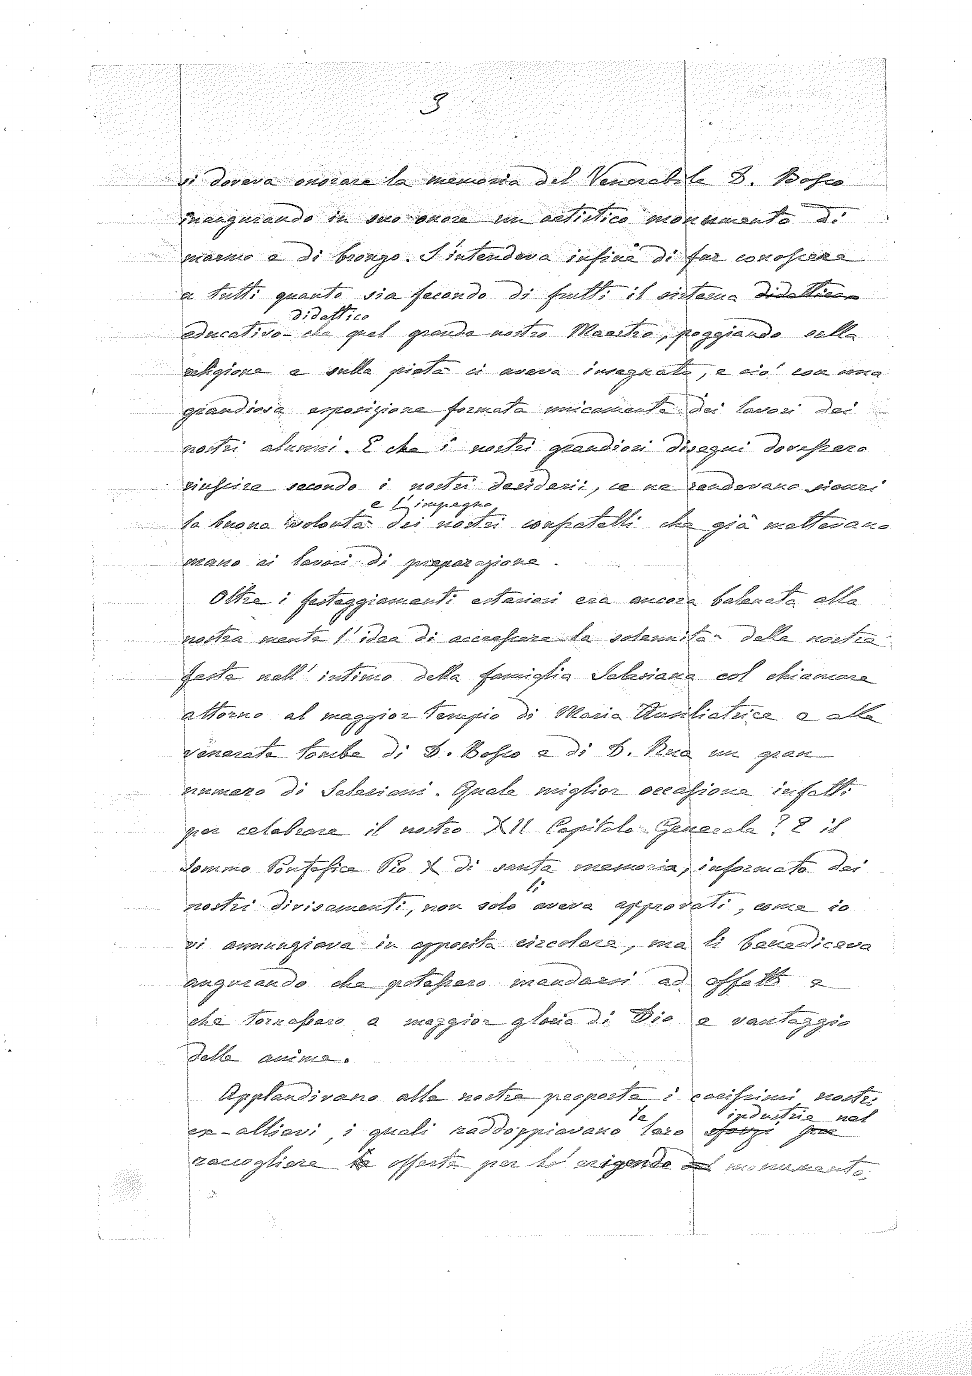 3
si doveva onorare la memoria del Venerabile D. Bosco
inaugurando in suo onore un artistico monumento di
marmo e di bronzo. S'intendeva infine di far conoscere
a tutti quanto sia fecondo di frutti il sistema didattico
didattico
educativo che quel grande nostro Maestro, poggiando sulla
religione e sulla pietà ci aveva insegnato, e ciò con una
grandiosa esposizione formata unicamente dei lavori dei
nostri alunni. E che i nostri grandiosi disegni dovessero
riuscire secondo i nostri desiderii, ce ne rendevano sicuri
e l'impegno
la buona volontà dei nostri confratelli che già mettevano
mano ai lavori di preparazione.
Oltre i festeggiamenti esteriori era ancora balenata alla
nostra mente l'idea di accrescere la solennità della nostra
festa nell'intimo della famiglia Salesiana col chiamare
attorno al maggior tempio di Maria Ausiliatrice e alle
venerate tombe di D. Bosco e di D. Rua un gran
numero di Salesiani. Quale miglior occasione infatti
per celebrare il nostro XII Capitolo Generale? E il
Sommo Pontefice Pio X di santa memoria, informato dei
li
nostri divisamenti, non solo aveva approvati, come io
vi annunziava in apposita circolare, ma li benediceva
augurando che potessero mandarsi ad effetto e
che tornassero a maggior gloria di Dio e vantaggio
delle anime.
Applaudivano alla nostra proposta i carissimi nostri
le industrie nel
ex-allievi, i quali raddoppiavano loro sforzi per
raccogliere le offerte per l'erigendo monumento,